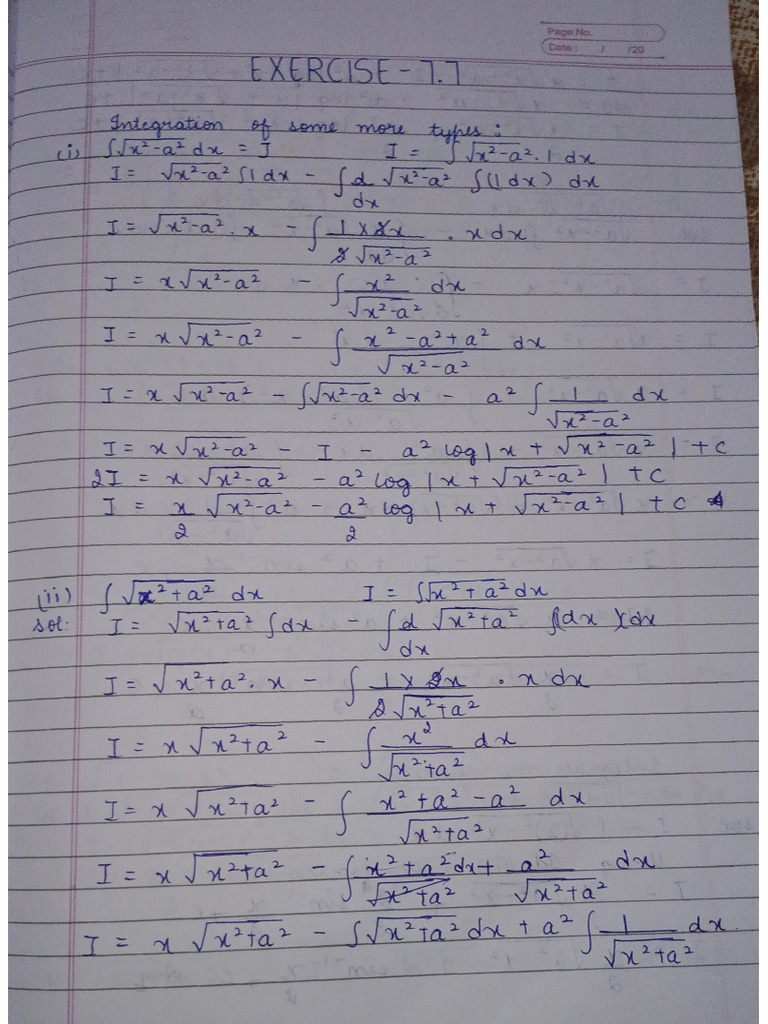 Page No.
Date : / /20
EXERCISE - 7.7
Integration of some more types :
(i) ∫√x²-a² dx = I I = ∫√x²-a² . 1 dx
I = √x²-a² ∫1 dx - ∫ d/dx √x²-a² ∫(1 dx) dx
I = √x²-a² . x - ∫ 1 × 2x / 2√x²-a² . x dx
I = x √x²-a² - ∫ x² / √x²-a² dx
I = x √x²-a² - ∫ x² - a² + a² / √x²-a² dx
I = x √x²-a² - ∫√x²-a² dx - a² ∫ 1 / √x²-a² dx
I = x √x²-a² - I - a² log | x + √x²-a² | + c
2I = x √x²-a² - a² log | x + √x²-a² | + c
I = x/2 √x²-a² - a²/2 log | x + √x²-a² | + c
(ii) ∫ √x²+a² dx I = ∫√x²+a² dx
sol: I = √x²+a² ∫dx - ∫ d/dx √x²+a² ∫(dx) dx
I = √x²+a² . x - ∫ 1 × 2x / 2√x²+a² . x dx
I = x √x²+a² - ∫ x² / √x²+a² dx
I = x √x²+a² - ∫ x² + a² - a² / √x²+a² dx
I = x √x²+a² - ∫ x² + a² / √x²+a² dx + a² / √x²+a² dx
I = x √x²+a² - ∫√x²+a² dx + a² ∫ 1 / √x²+a² dx.